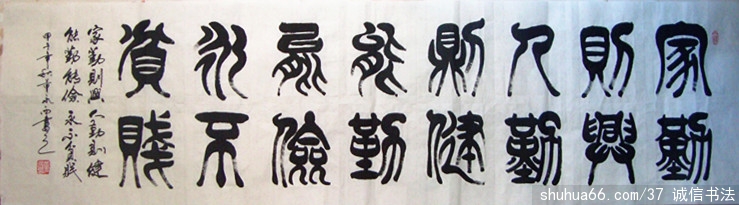 家勤
則興
人勤
則健
能勤
能儉
永不
貧賤
家勤則興人勤則健
能勤能儉永不貧賤
甲午年秋
shuhua66.com/37 诚信书法